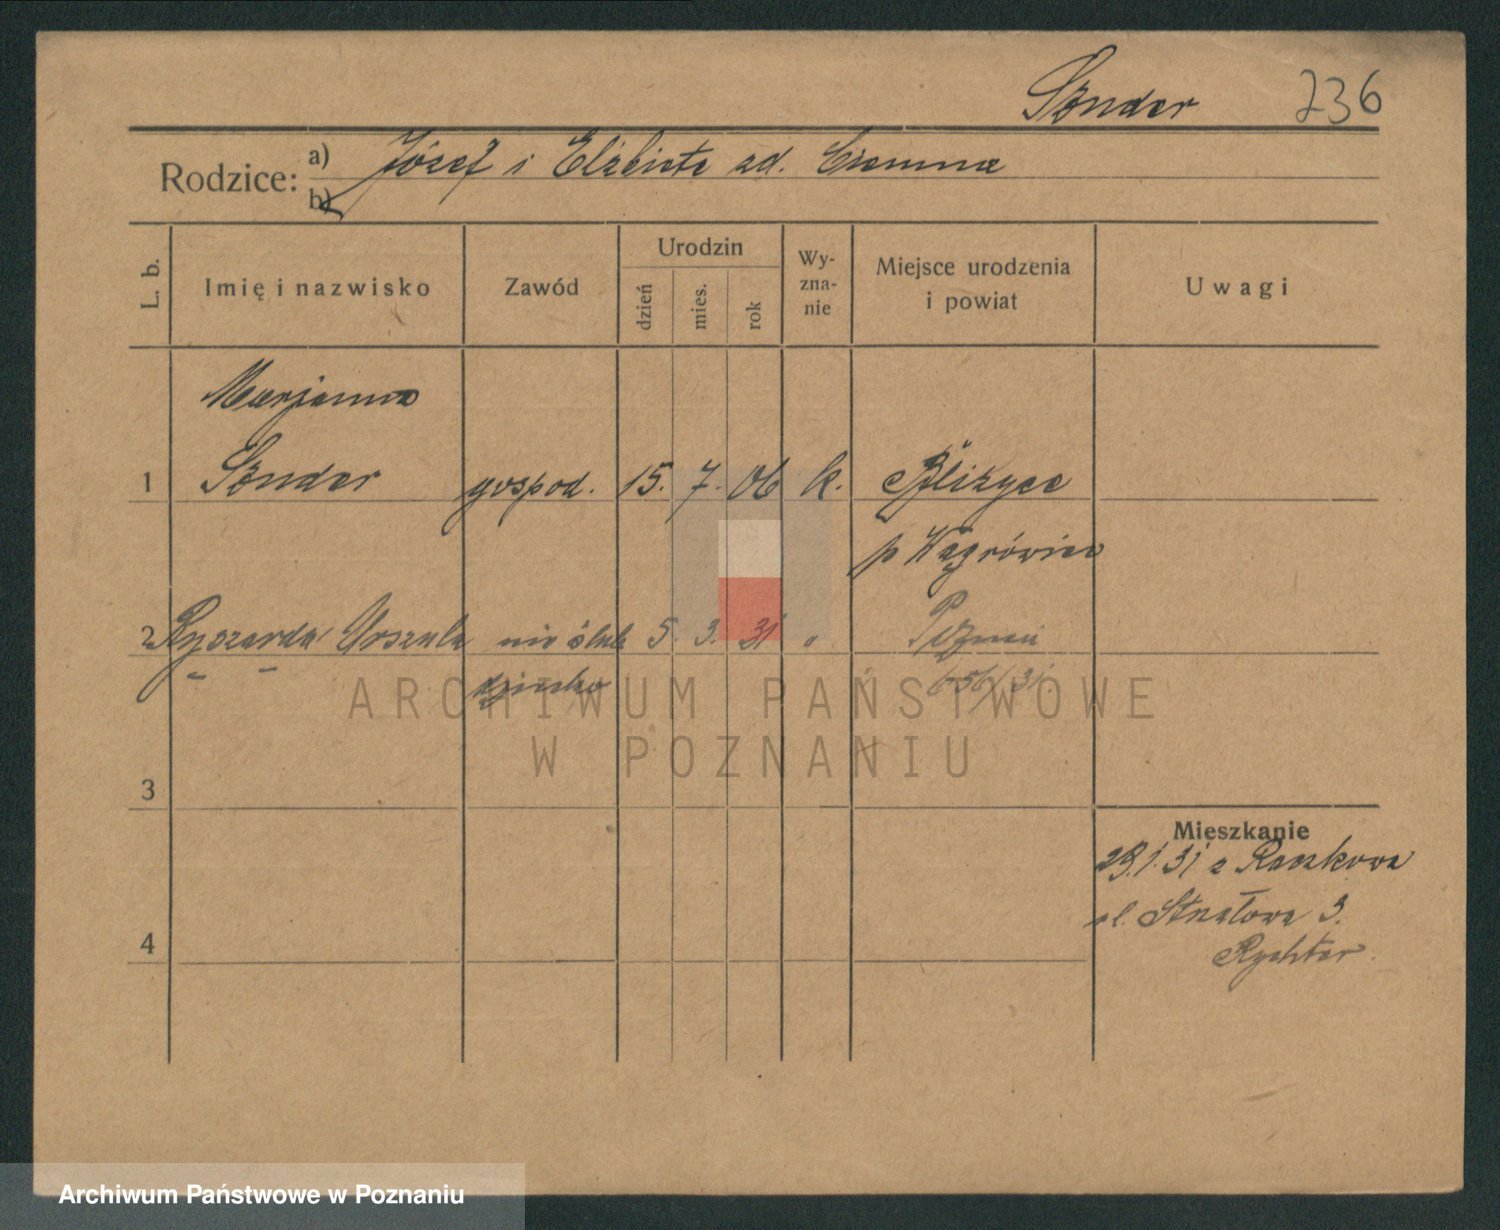 Sonder 236
Rodzice: a) Józef i Elżbieta zd. Czemna
b)
L. b. Imię i nazwisko Zawód Urodzin dzień mies. rok Wy-zna-nie Miejsce urodzenia i powiat Uwagi
Marjanna
1 Sonder gospod. 15. 7. 06 k.
p Wągrówiec
2 Ryszarda Urszula nie ślub 5. 3. 31 " Poznań
dziecko 656/31
ARCHIWUM PAŃSTWOWE
W POZNANIU
3
Mieszkanie
29.1.31 z Raczkowa
ul. Strzałowa 3.
4
Rychter.
Archiwum Państwowe w Poznaniu